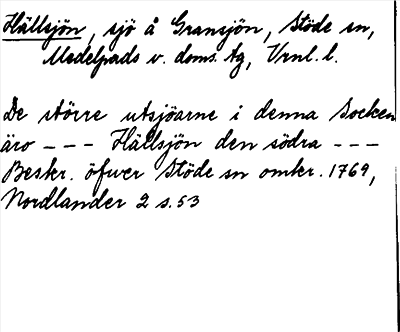 Hällsjön, sjö å Gransjön, Stöde sn,
Medelpads v. doms. tg, Vrnl. l.
De större utsjöarne i denna Socken
äro --- Hällsjön den södra ---
Beskr. öfwer Stöde sn omkr. 1769,
Nordlander 2 s. 53